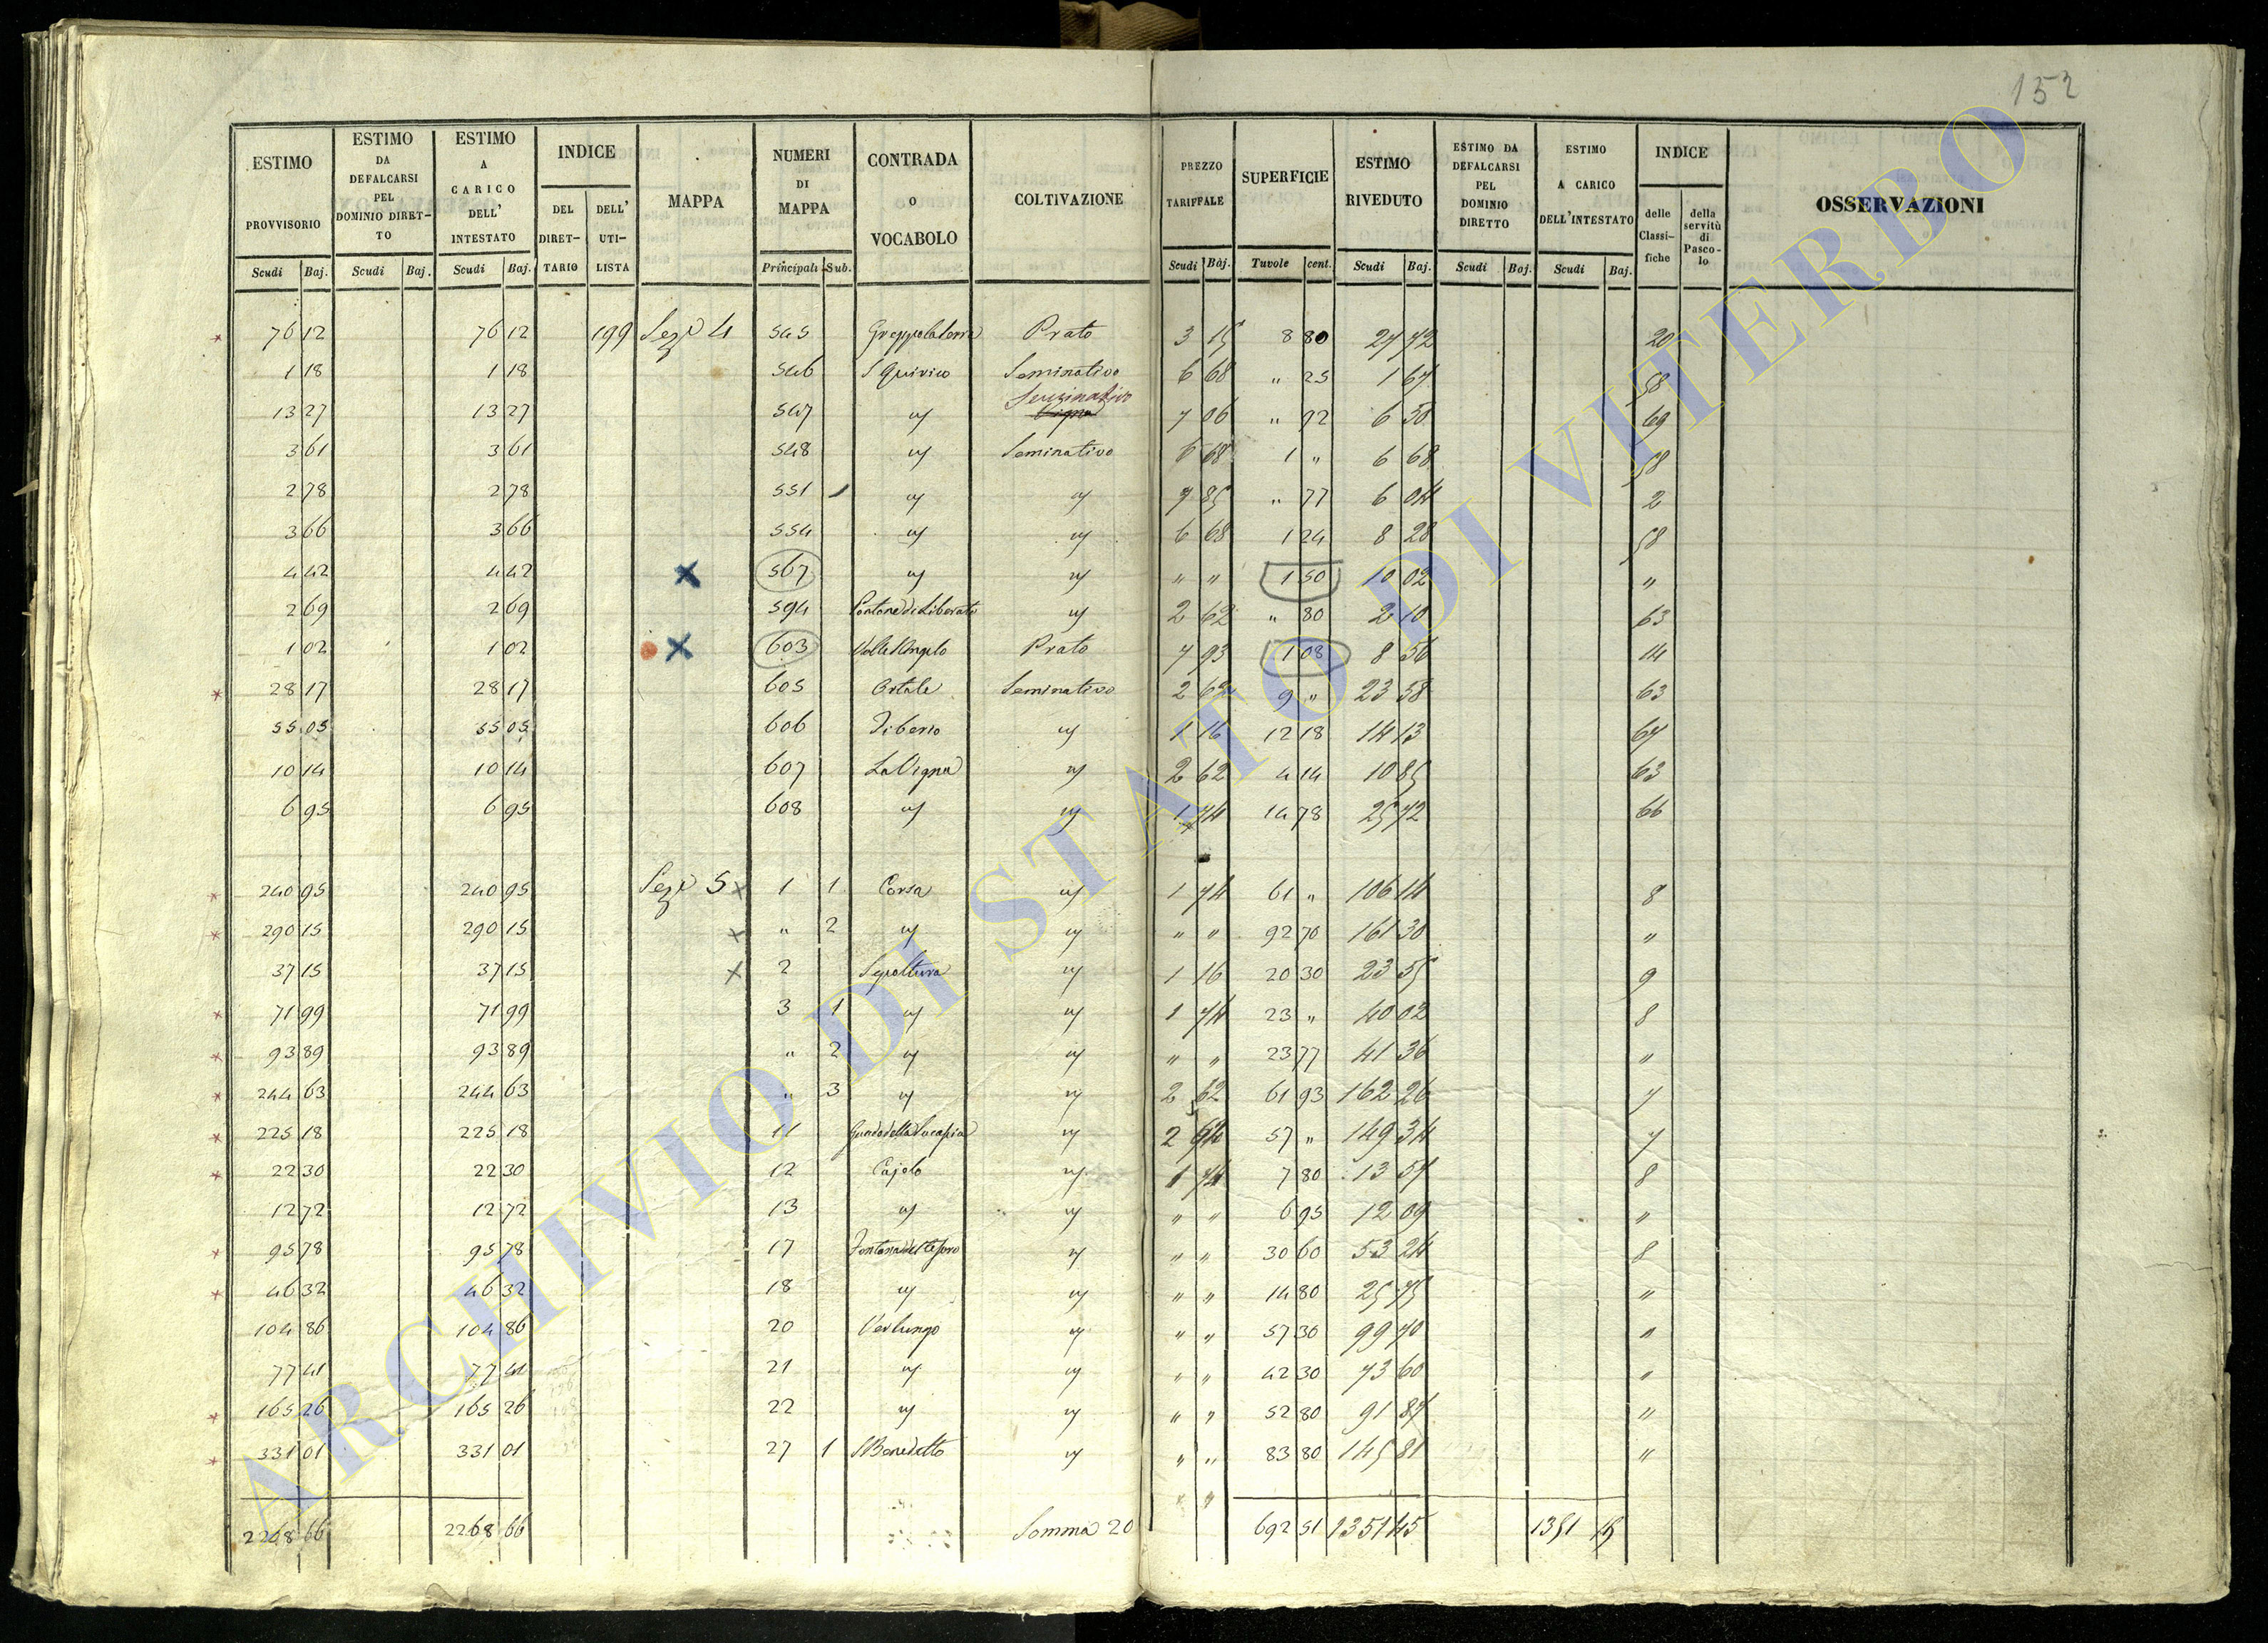 152
ESTIMO PROVVISORIO | ESTIMO DA DEFALCARSI PEL DOMINIO DIRET-TO | ESTIMO A CARICO DELL' INTESTATO | INDICE | MAPPA | NUMERI DI MAPPA | CONTRADA O VOCABOLO | COLTIVAZIONE | PREZZO TARIFFALE | SUPERFICIE | ESTIMO RIVEDUTO | ESTIMO DA DEFALCARSI PEL DOMINIO DIRETTO | ESTIMO A CARICO DELL'INTESTATO | INDICE | OSSERVAZIONI
DEL DIRET-TARIO | DELL' UTI-LISTA | delle Classi-fiche | della servitù di Pasco-lo
Scudi | Baj. | Scudi | Baj. | Scudi | Baj. | Principali | Sub. | Scudi | Baj. | Tavole | cent. | Scudi | Baj. | Scudi | Baj. | Scudi | Baj.
76 12 | 76 12 | 199 | Sezⁿᵉ 4 | 545 | | Prato | 3 15 | 8 80 | 27 72 | 20
1 18 | 1 18 | 546 | S Quirico | Seminativo | 6 68 | " 25 | 1 67 | 58
13 27 | 13 27 | 547 | " | Seminativo Vigna | 7 06 | " 92 | 6 50 | 69
3 61 | 3 61 | 548 | " | Seminativo | 6 68 | 1 " | 6 68 | 58
2 78 | 2 78 | 551 | " | " | 7 85 | " 77 | 6 04 | 2
3 66 | 3 66 | 554 | " | " | 6 68 | 1 24 | 8 28 | 58
4 42 | 4 42 | 567 | " | " | " " | 1 50 | 10 02 | "
2 69 | 2 69 | 594 | Pontone di Liberato | " | 2 62 | " 80 | 2 10 | 63
1 02 | 1 02 | 603 | Valle d'Angelo | Prato | 7 93 | 1 08 | 8 56 | 14
28 17 | 28 17 | 605 | Ortale | Seminativo | 2 62 | 9 " | 23 58 | 63
55 05 | 55 05 | 606 | Tiberio | " | 1 16 | 12 18 | 14 13 | 67
10 14 | 10 14 | 607 | La Vigna | " | 2 62 | 4 14 | 10 85 | 63
6 95 | 6 95 | 608 | " | " | 1 74 | 14 78 | 25 72 | 66
240 95 | 240 95 | Sezⁿᵉ 5 | 1 | 1 | Corsa | " | 1 74 | 61 " | 106 14 | 8
290 15 | 290 15 | " | 2 | " | " | " " | 92 70 | 161 30 | "
37 15 | 37 15 | 2 | Sepoltura | " | 1 16 | 20 30 | 23 55 | 9
71 99 | 71 99 | 3 | 1 | " | " | 1 74 | 23 " | 40 02 | 8
93 89 | 93 89 | " | 2 | " | " | " " | 23 77 | 41 36 | "
244 63 | 244 63 | " | 3 | " | " | 2 62 | 61 93 | 162 26 | 7
225 18 | 225 18 | 11 | | " | 2 | 57 " | 149 34 | 7
22 30 | 22 30 | 12 | Cajolo | " | 1 74 | 7 80 | 13 57 | 8
12 72 | 12 72 | 13 | " | " | " " | 6 95 | 12 09 | "
95 78 | 95 78 | 17 | Fontana del Tesoro | " | " " | 30 60 | 53 24 | 8
46 32 | 46 32 | 18 | " | " | " " | 14 80 | 25 75 | "
104 86 | 104 86 | 20 | Verlungo | " | " " | 57 30 | 99 70 | "
77 41 | 77 41 | 21 | " | " | " " | 42 30 | 73 60 | "
165 26 | 165 26 | 22 | " | " | " " | 52 80 | 91 87 | "
331 01 | 331 01 | 27 | 1 | S Benedetto | " | " " | 83 80 | 145 81 | "
2268 66 | 2268 66 | Somma 20 | 692 51 | 1351 45 | 1351 45
ARCHIVIO DI STATO DI VITERBO